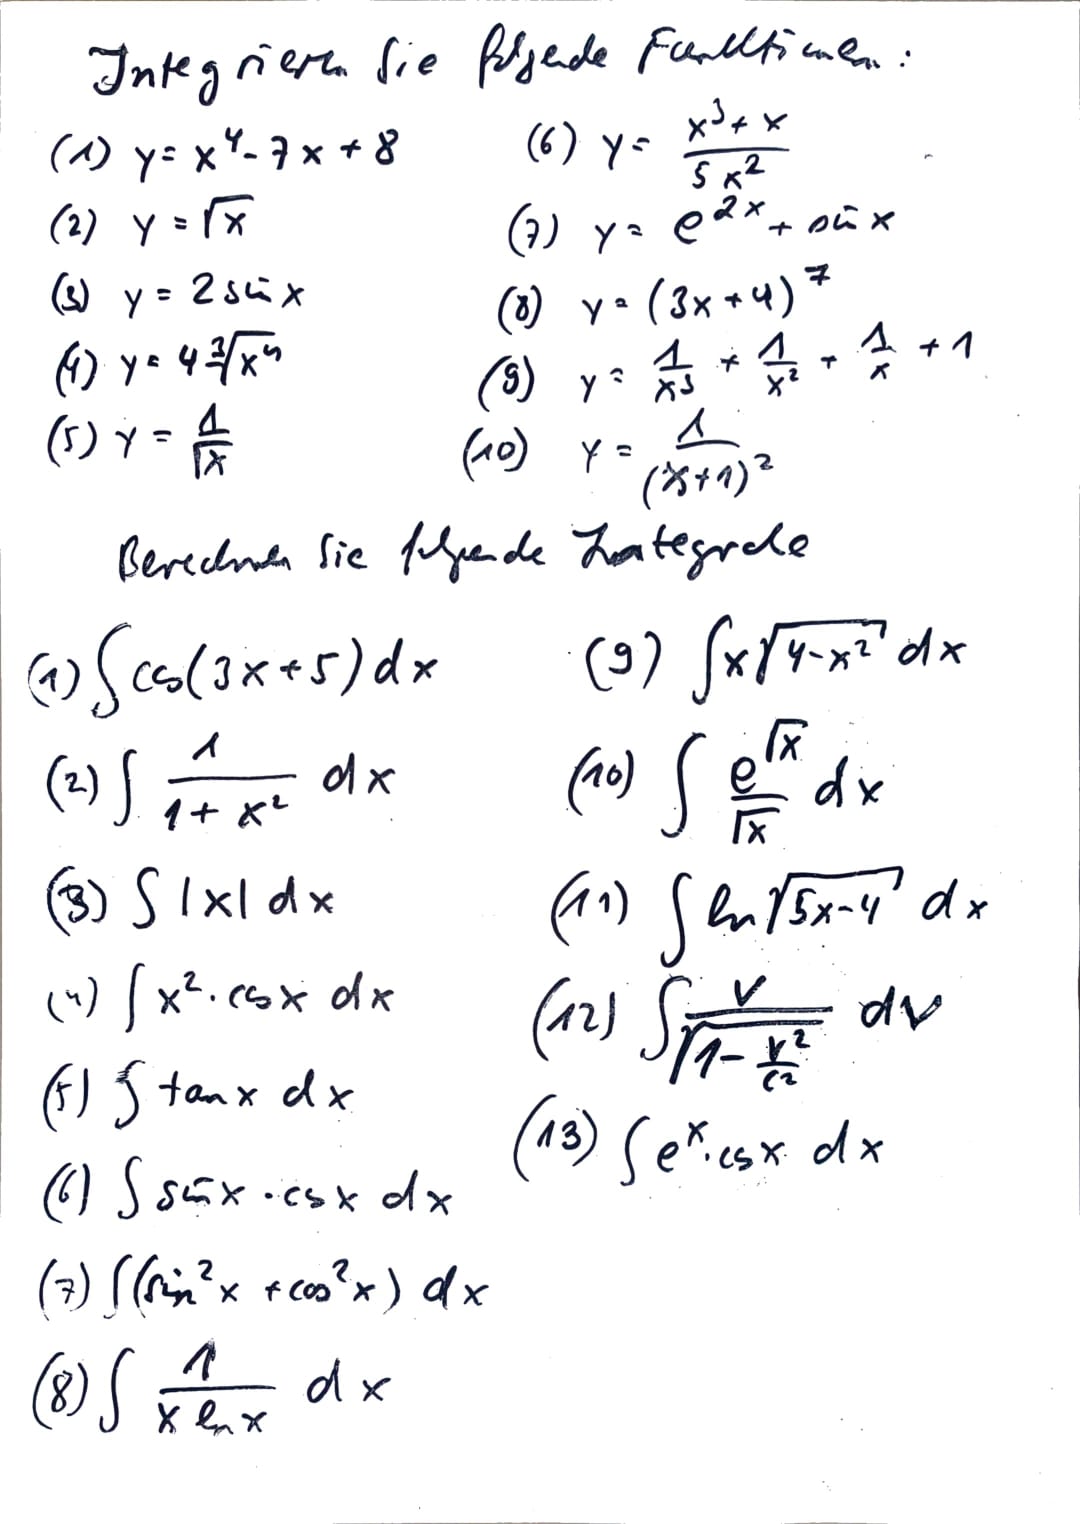 Integrieren Sie folgende Funktionen:
(1) y = x⁴ - 7x + 8
(2) y = √x
(3) y = 2 sin x
(4) y = 4 ∛(x⁴)
(5) y = 1/√x
(6) y = (x³ + x)/(5x²)
(7) y = e^(2x) + sin x
(8) y = (3x + 4)⁷
(9) y = 1/x³ + 1/x² + 1/x + 1
(10) y = 1/(x+1)²
Berechnen Sie folgende Integrale
(1) ∫ cos(3x+5) dx
(2) ∫ 1/(1+x²) dx
(3) ∫ |x| dx
(4) ∫ x² · cos x dx
(5) ∫ tan x dx
(6) ∫ sin x · cos x dx
(7) ∫ (sin² x + cos² x) dx
(8) ∫ 1/(x ln x) dx
(9) ∫ x√(4-x²) dx
(10) ∫ e^(√x)/√x dx
(11) ∫ ln √(5x-4) dx
(12) ∫ v/√(1 - v²/c²) dv
(13) ∫ eˣ · cos x dx